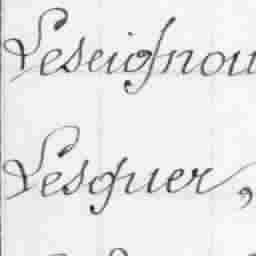 Leseignou
Lesquer,